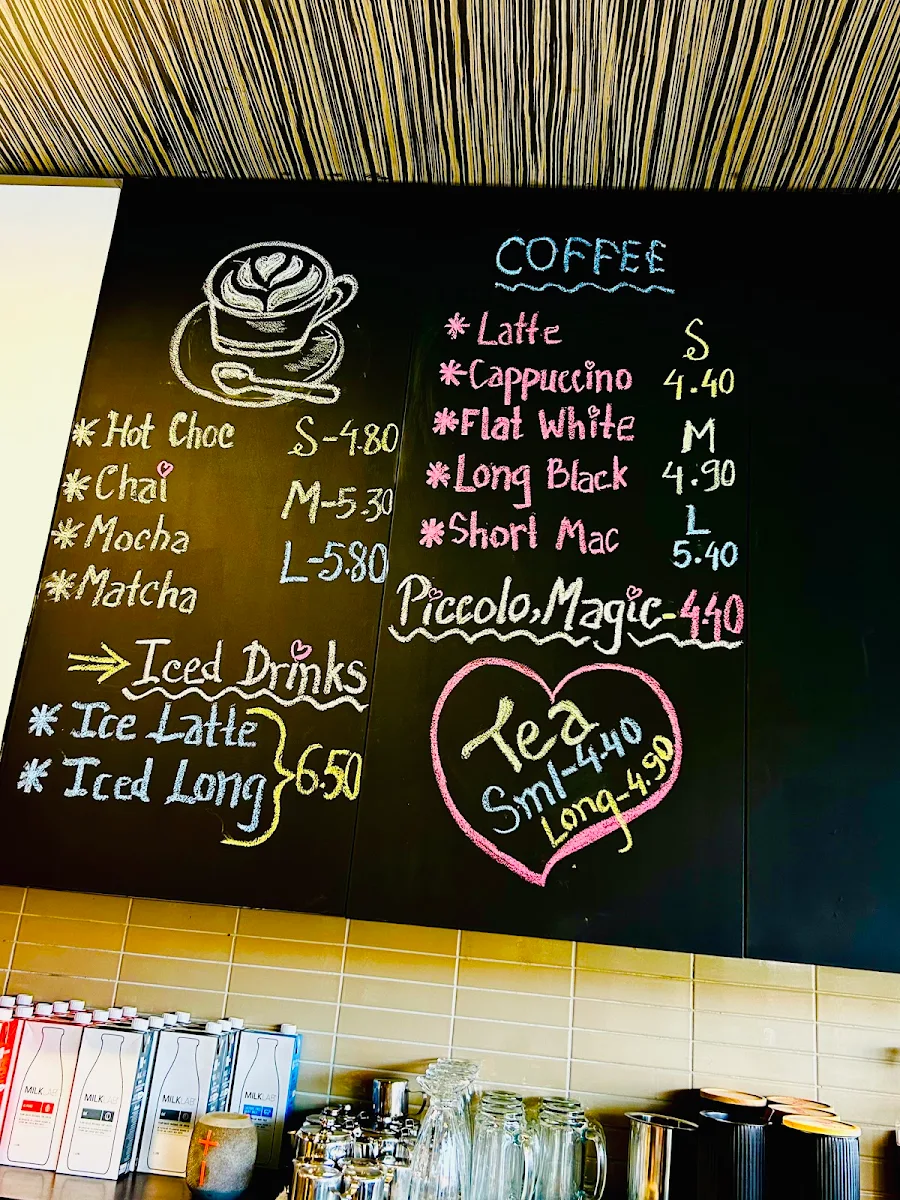 * Hot Choc S-4.80
* Chai M-5.30
* Mocha L-5.80
* Matcha
→ Iced Drinks
* Ice Latte
* Iced Long } 6.50
COFFEE
* Latte S
* Cappuccino 4.40
* Flat White M
* Long Black 4.90
* Short Mac L
5.40
Piccolo, Magic-4.40
Tea
Sml-4.40
Long-4.90
MILKLAB
MILKLAB
MILKLAB
MILKLAB